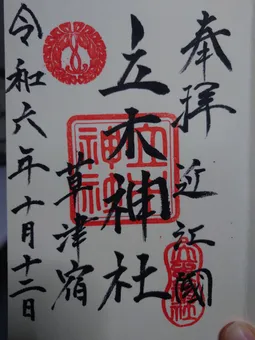 奉拝
近江國
立木神社
草津宿
令和六年十月十二日
立木神社